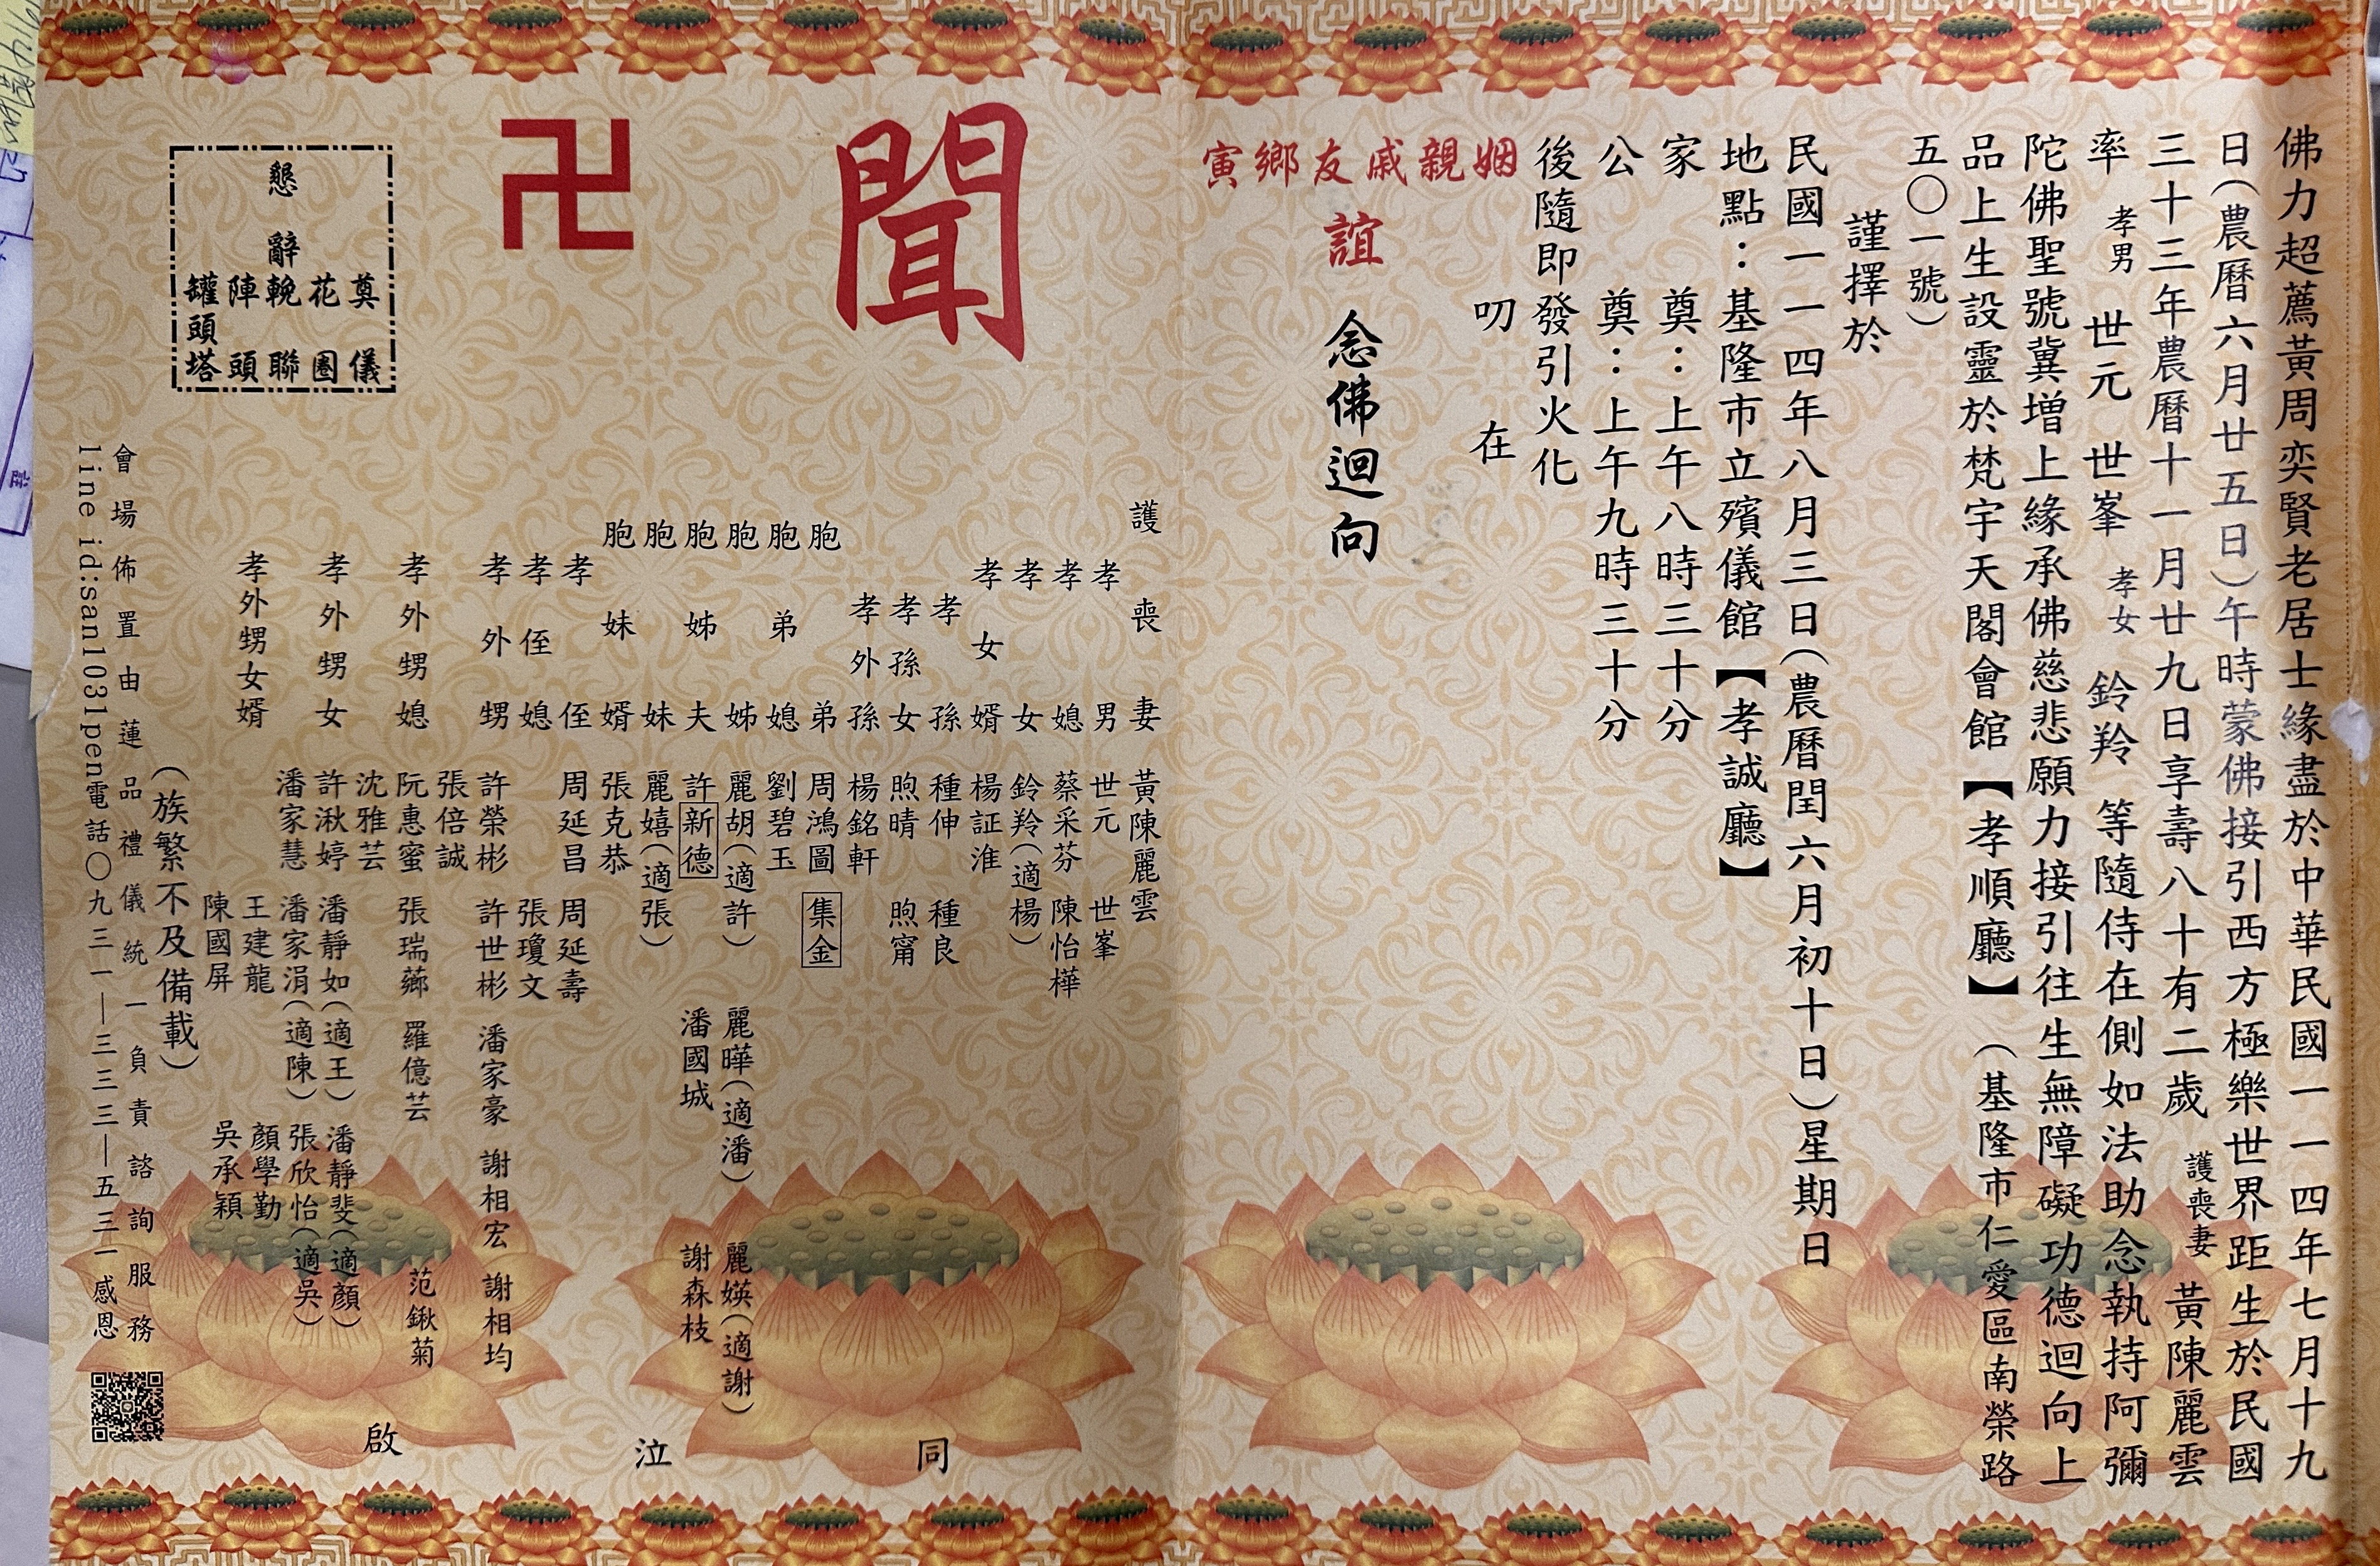 佛力超薦黃周奕賢老居士緣盡於中華民國一一四年七月十九
日（農曆六月廿五日）午時蒙佛接引西方極樂世界距生於民國
三十三年農曆十一月廿九日享壽八十有二歲 護喪妻 黃陳麗雲
率 孝男 世元 世峯 孝女 鈴羚 等隨侍在側如法助念執持阿彌
陀佛聖號冀增上緣承佛慈悲願力接引往生無障礙功德迴向上
品上生設靈於梵宇天閣會館【孝順廳】（基隆市仁愛區南榮路
五〇一號）
謹擇於
民國一一四年八月三日（農曆閏六月初十日）星期日
地點：基隆市立殯儀館【孝誠廳】
家 奠：上午八時三十分
公 奠：上午九時三十分
後隨即發引火化
叨 在
姻親戚友鄉寅
誼 念佛迴向
聞
卍
懇辭
奠儀
花圈
輓聯
陣頭
罐頭塔
護喪妻 黃陳麗雲
孝男 世元 世峯
孝媳 蔡采芬 陳怡樺
孝女 鈴羚（適楊）
孝女婿 楊証淮
孝孫 種伸 種良
孝孫女 煦晴 煦甯
孝外孫 楊銘軒
胞弟 周鴻圖 集金
胞弟媳 劉碧玉
胞姊 麗胡（適許） 麗曄（適潘） 麗媖（適謝）
胞姊夫 許新德 潘國城 謝森枝
胞妹 麗嬉（適張）
胞妹婿 張克恭
孝侄 周延昌 周延壽
孝侄媳 張瓊文
孝外甥 許榮彬 許世彬 潘家豪 謝相宏 謝相均
張倍誠
孝外甥媳 阮惠蜜 張瑞薌 羅億芸 范鍬菊
沈雅芸
孝外甥女 許湫婷 潘靜如（適王） 潘靜斐（適顏）
潘家慧 潘家涓（適陳） 張欣怡（適吳）
孝外甥女婿 王建龍 顏學勤
陳國屏 吳承穎
（族繁不及備載）
同 泣 啟
會場佈置由蓮品禮儀統一負責諮詢服務
line id:san1031pen電話〇九三一—三三三—五三一感恩